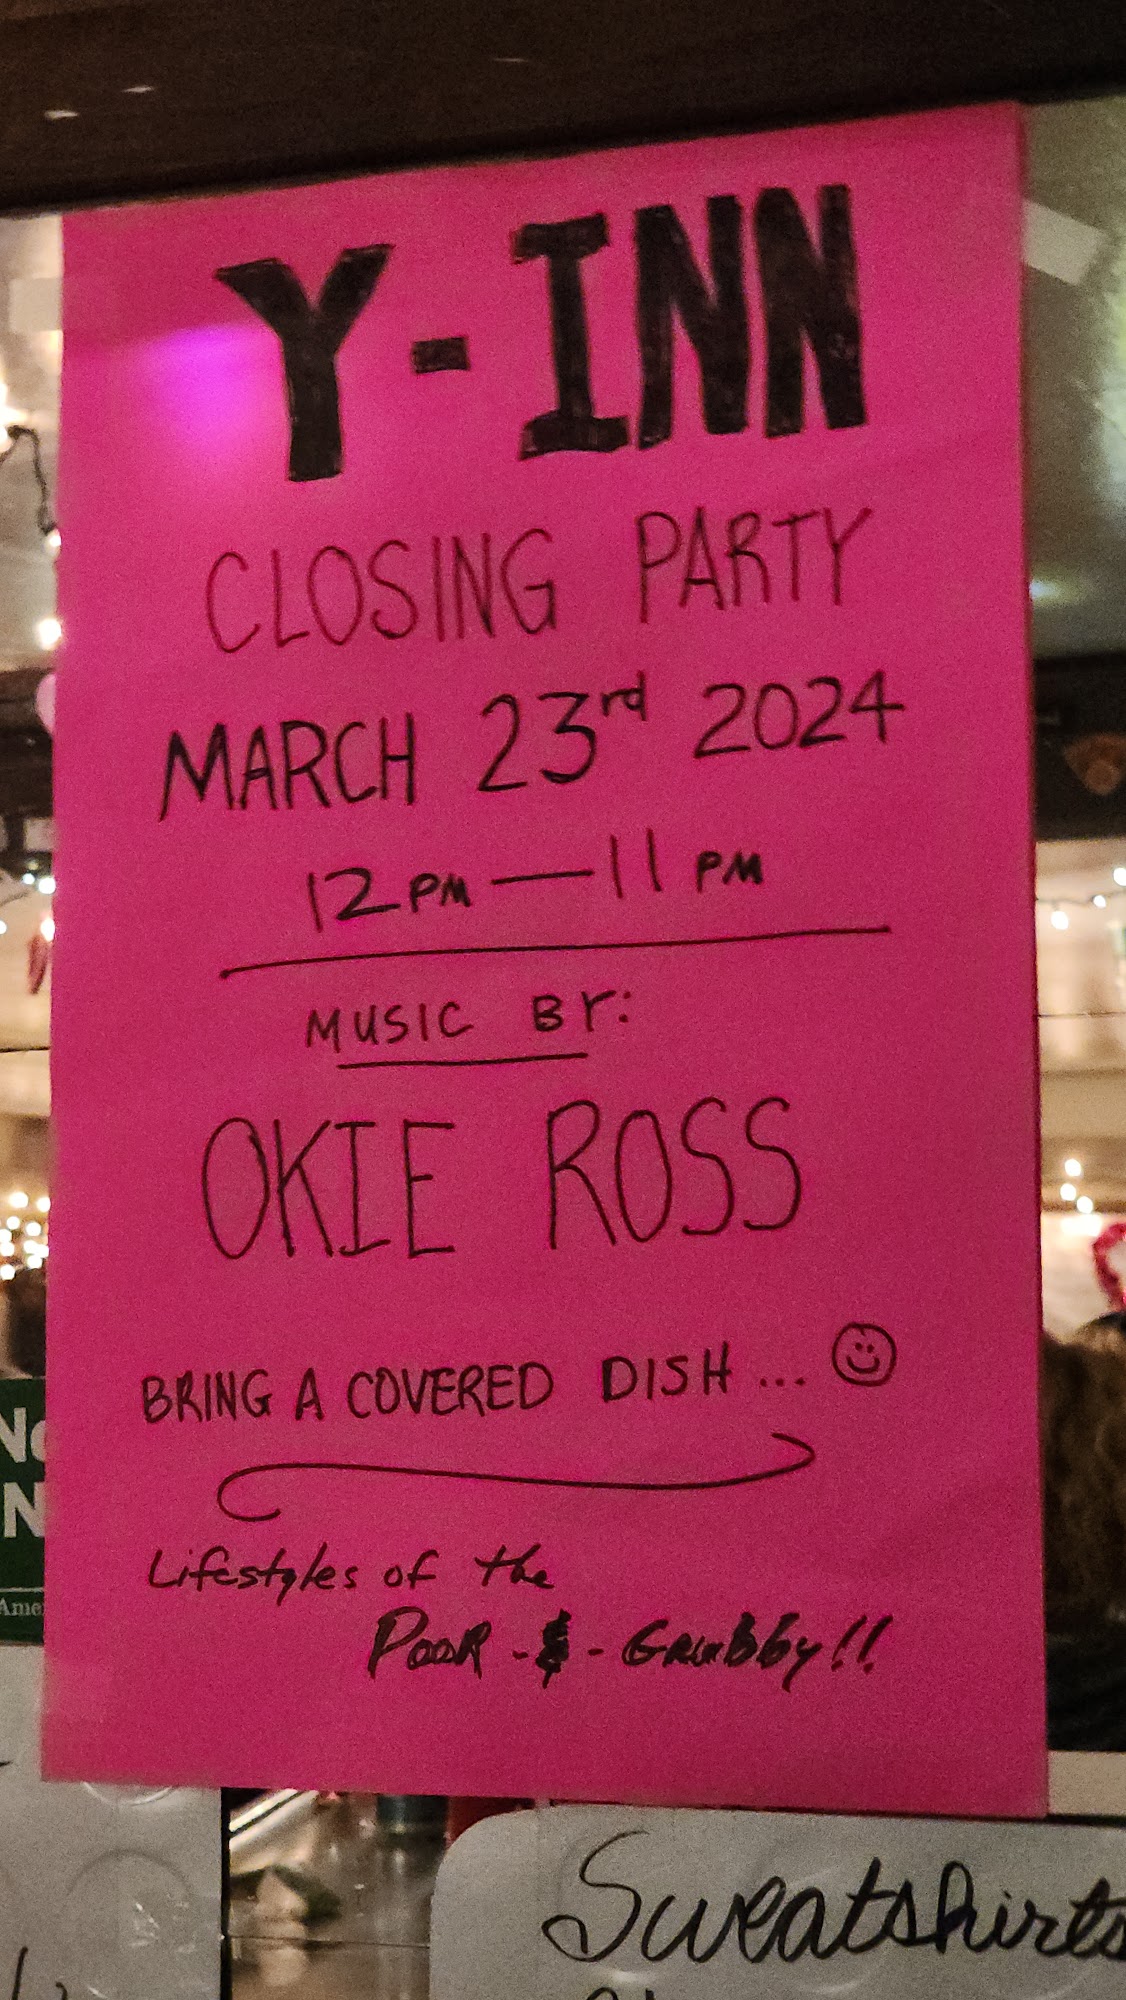 Y-INN
CLOSING PARTY
MARCH 23rd 2024
12PM — 11 PM
MUSIC BY:
OKIE ROSS
BRING A COVERED DISH... ☺
Lifestyles of the
POOR -&- GRubby!!
Sweatshirts